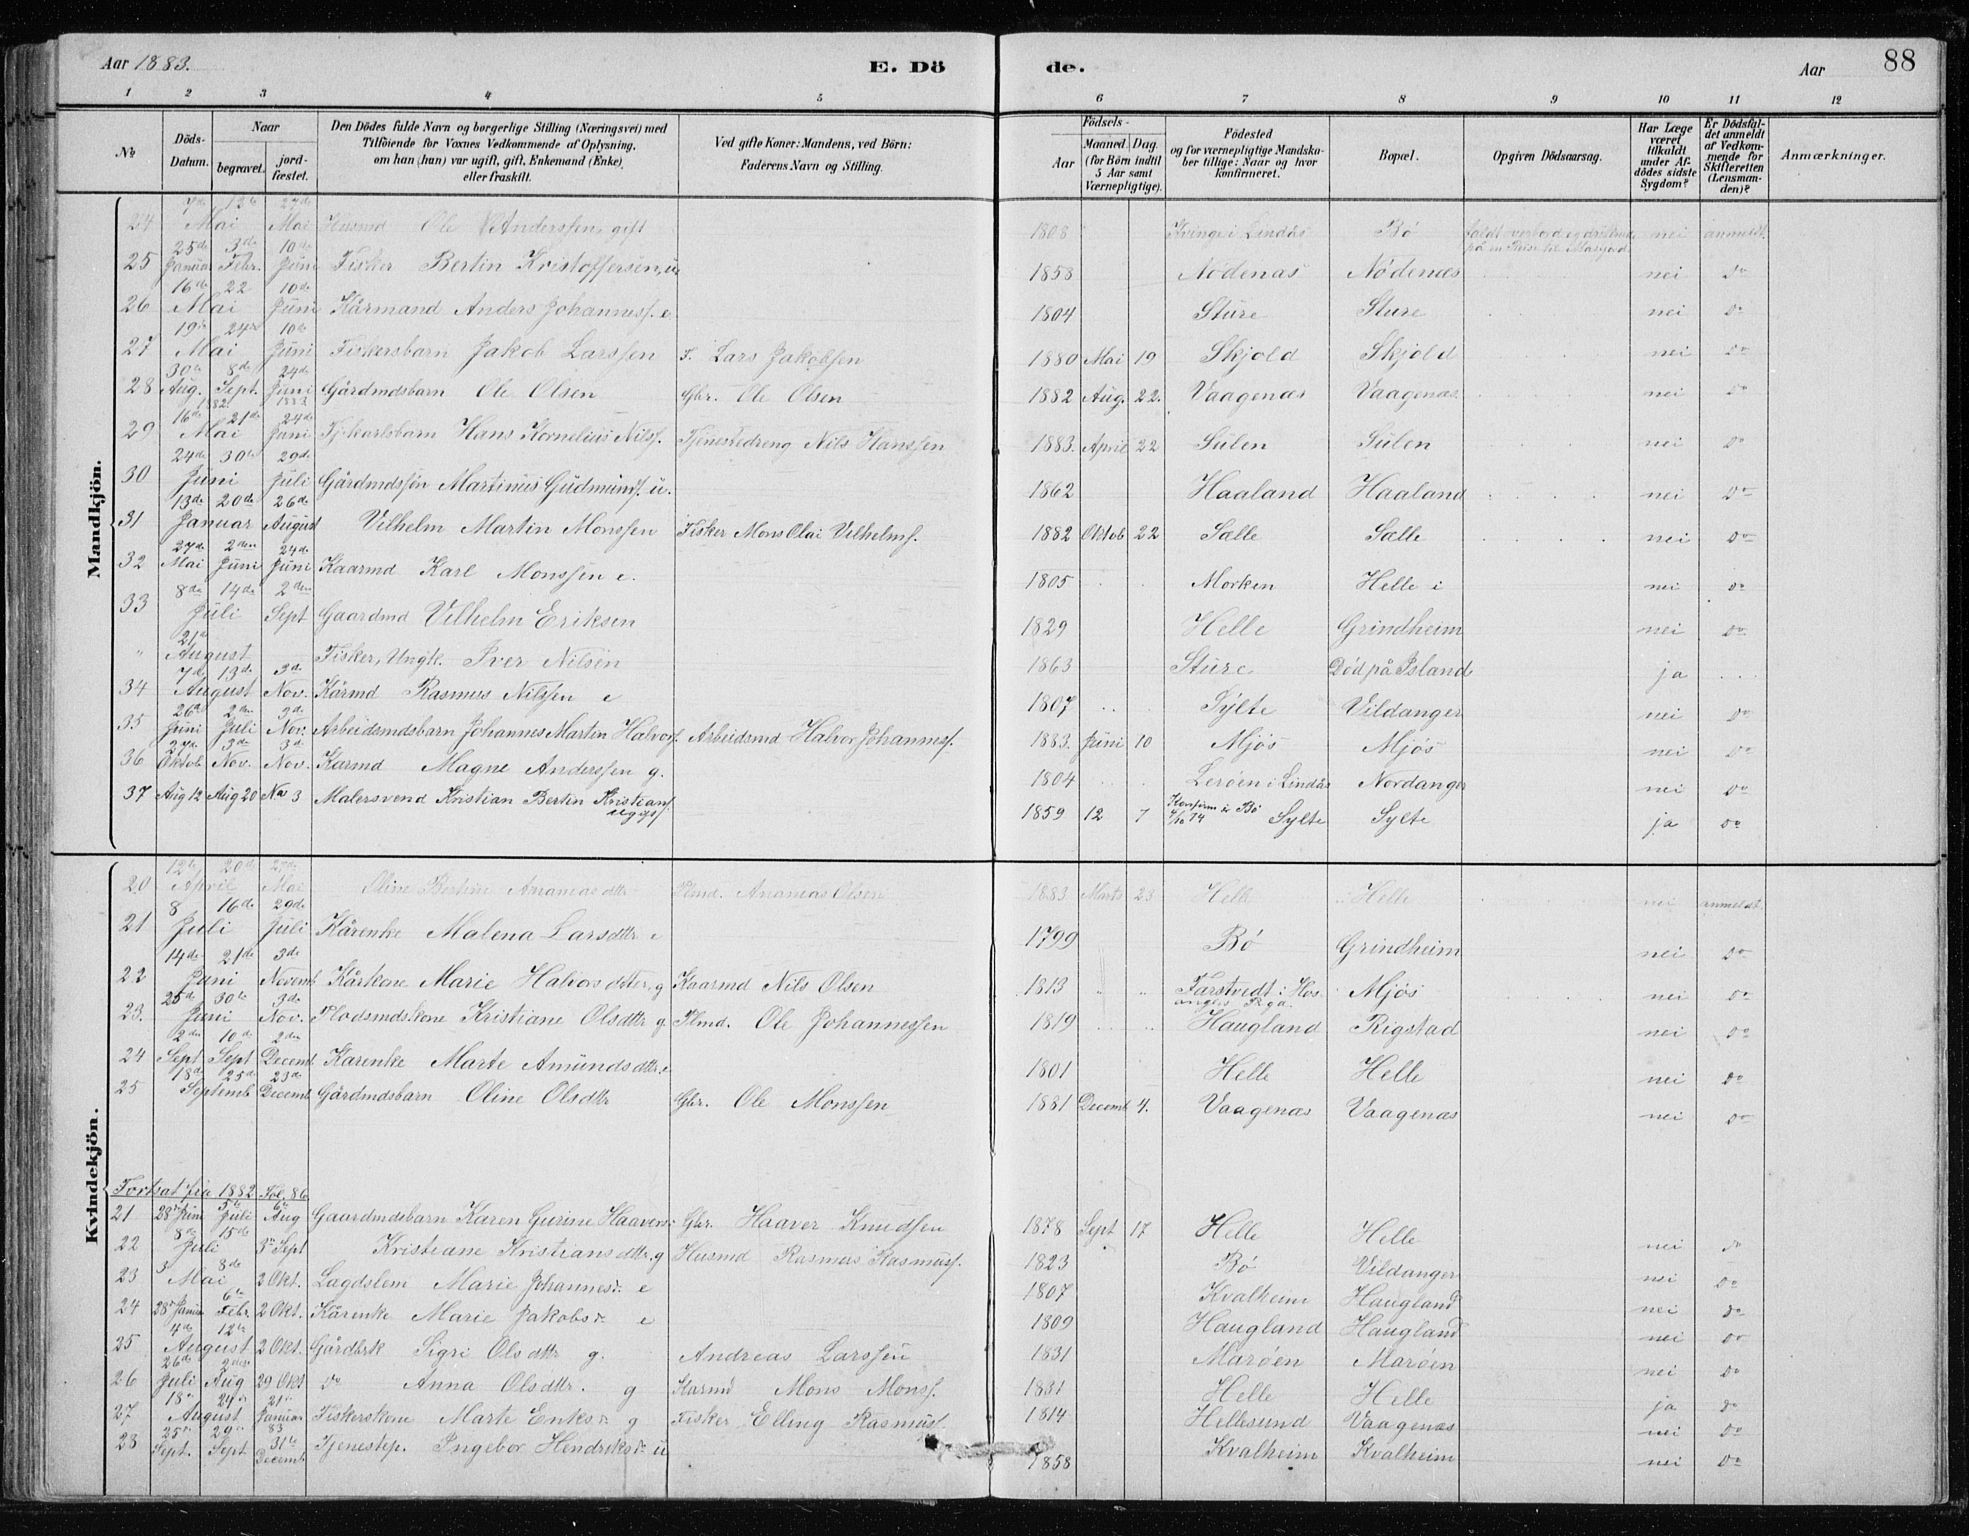 Aar 1883.
E. Dö
de.
Aar
88
1 2 3 4 5 6 7 8 9 10 11 12
No
Döds-Datum.
Naar
begravet.
jord-fæstet.
Den Dödes fulde Navn og borgerlige Stilling (Næringsvei) med
Tilföiende for Voxnes Vedkommende af Oplysning,
om han (hun) var ugift, gift, Enkemand (Enke),
eller fraskilt.
Ved gifte Koner: Mandens, ved Börn:
Faderens Navn og Stilling.
Födsels-
Aar
Maaned. Dag.
(for Börn indtil
5 Aar samt
Værnepligtige).
Födested
og for værnepligtige Mandska-
ber tillige: Naar og hvor
konfirmeret.
Bopæl.
Opgiven Dödsaarsag.
Har Læge
været
tilkaldt
under Af-
dödes sidste
Sygdom?
Er Dödsfal-
det anmeldt
af Vedkom-
mende for
Skifteretten
(Lensman-
den)?
Anmærkninger.
Mandkjön.
24 7de Mai 12te 27de Mai Husmd Ole Anderssen, gift 1808 Kvinge i Lindås Bø faldt overbord og druknede på en Reise til Masfjord nei anmeldt.
25 25de Januar 3de Febr. 10de Juni Fisker Bertin Kristoffersen, u. 1858 Nödenæs Nödenæs nei do
26 16de Mai 22 10de Juni Kårmand Anders Johanness. e 1804 Sture Sture nei do
27 19de Mai 24de 10de Juni Fiskersbarn Jakob Larssen F. Lars Jakobsen 1880 Mai 19 Skjold Skjold nei do
28 30te Aug. 8de Sept. 1882 24de Juni 1883 Gårdmdsbarn Ole Olsen Gbr. Ole Olsen 1882 Aug. 22. Vaagenæs Vaagenæs nei do
29 16de Mai 21de 24de Juni Tj.karlsbarn Hans Kornelius Nilss. Tjenestedreng Nils Hanssen 1883. April 22 Sulen Sulen nei do
30 24de Juni 30te 29de Juli Gårdmdssön Martinus Gudmunds. u. 1862 Haaland Haaland nei do
31 13de Januar 20de 26de August Vilhelm Martin Monssen Fisker Mons Olai Vilhelms. 1882 Oktob 22 Salle Sælle nei do
32 27de Mai 2den Juni 24de Juni Kaarmd Karl Monssen e. 1805 Morken Helle i nei do
33 8de Juli 14de 2den Sept Gaardmd Vilhelm Eriksen 1829 Helle Grindheim nei do
" 21de August Fisker, Ungk. Iver Nilsen 1863 Sture Död på Island ja
34 7de August 13de 3de Nov. Kårmd Rasmus Nilssen e 1807 Sylte Vildanger nei do
35 26de Juni 2den Juli 3de Nov. Arbeidsmdsbarn Johannes Martin Halvors. Arbeidsmd Halvor Johanness. 1883. Juni 10 Mjös Mjös nei do
36 27de Oktob 3de Nov. 3de Nov. Karmd Magne Anderssen g. 1804 Leröen i Lindås Nordanger nei do
37 Aug 12 Aug 20 Nov 3 Malersvend Kristian Bertin Kristians. 1859 12 7 Konfirm i Bö 4/10 74 Sylte Sylte ja do
Kvindekjön.
20 12te April 20de 27de Mai Oline Bertine Ananias dttr Plmd. Ananias Olsen 1883 Marts 23 Helle Helle nei anmeldt.
21 8 Juli 16de 29de Juli Kårenke Malena Larsdttr e 1799 Bö Grindheim nei do
22 14de Juni 21de 3de Novemb Kårkone Marie Halvorsdtter, g Kaarmd Nils Olsen 1813 Farstvedt i Hosangers Pgd. Mjös nei do
23. 25de Juni 30te 3de Nov. Plodsmdskone Kristiane Olsdttr g. Plmd. Ole Johannessen 1819 Haugland Rigstad nei do
24 2de Sept 10de Sept 2den Decemb Kårenke Marte Amundsdttr. e 1801 Helle Helle nei do
25 18de Septemb 25de 23de Decemb Gårdmdsbarn Oline Olsdttr Gbr. Ole Monssen 1881 Decemb 4. Vaagenæs Vaagenæs nei do
Fortsat fra 1882 Fol. 86
21 28de Juni 5te Juli 6te Aug Gaardmdsbarn Karen Gurine Haavers. Gbr. Haaver Knudsen 1878 Sept 17 Helle Helle nei do
22 8de Juli 15de 3de Sept Kristiane Kristiansdttr, g Husmd Rasmus Rasmuss. 1823 Bö Vildanger nei do
23 3 Mai 8de 2 Okt. Lægdslem Marie Johannesdr. e 1807 Kvalheim Haugland nei do
24 28de Janua 6te Febr. 2 Okt. Kårenke Marie Jakobsdr. e 1809 Haugland Haugland nei do
25 4de August 12te 2 Okt. Gårdbrk Sigri Olsdttr g. Andreas Larssen 1831 Maröen Maröen nei do
26 26de Juli 2den Aug 29 Okt do Anna Olsdttr. g Karmd Mons Monss. 1831 Helle Helle ja do
27 18de August 24de 21de Januar 83 Fiskerskone Marte Enksdr g Fisker Elling Rasmuss. 1814 Hellesund Vaagenæs nei do
28 25de Sept. 29de Sept 31te Decemb Tjenestep. Ingebor Hendriksdr u 1858 Kvalheim Kvalheim nei do